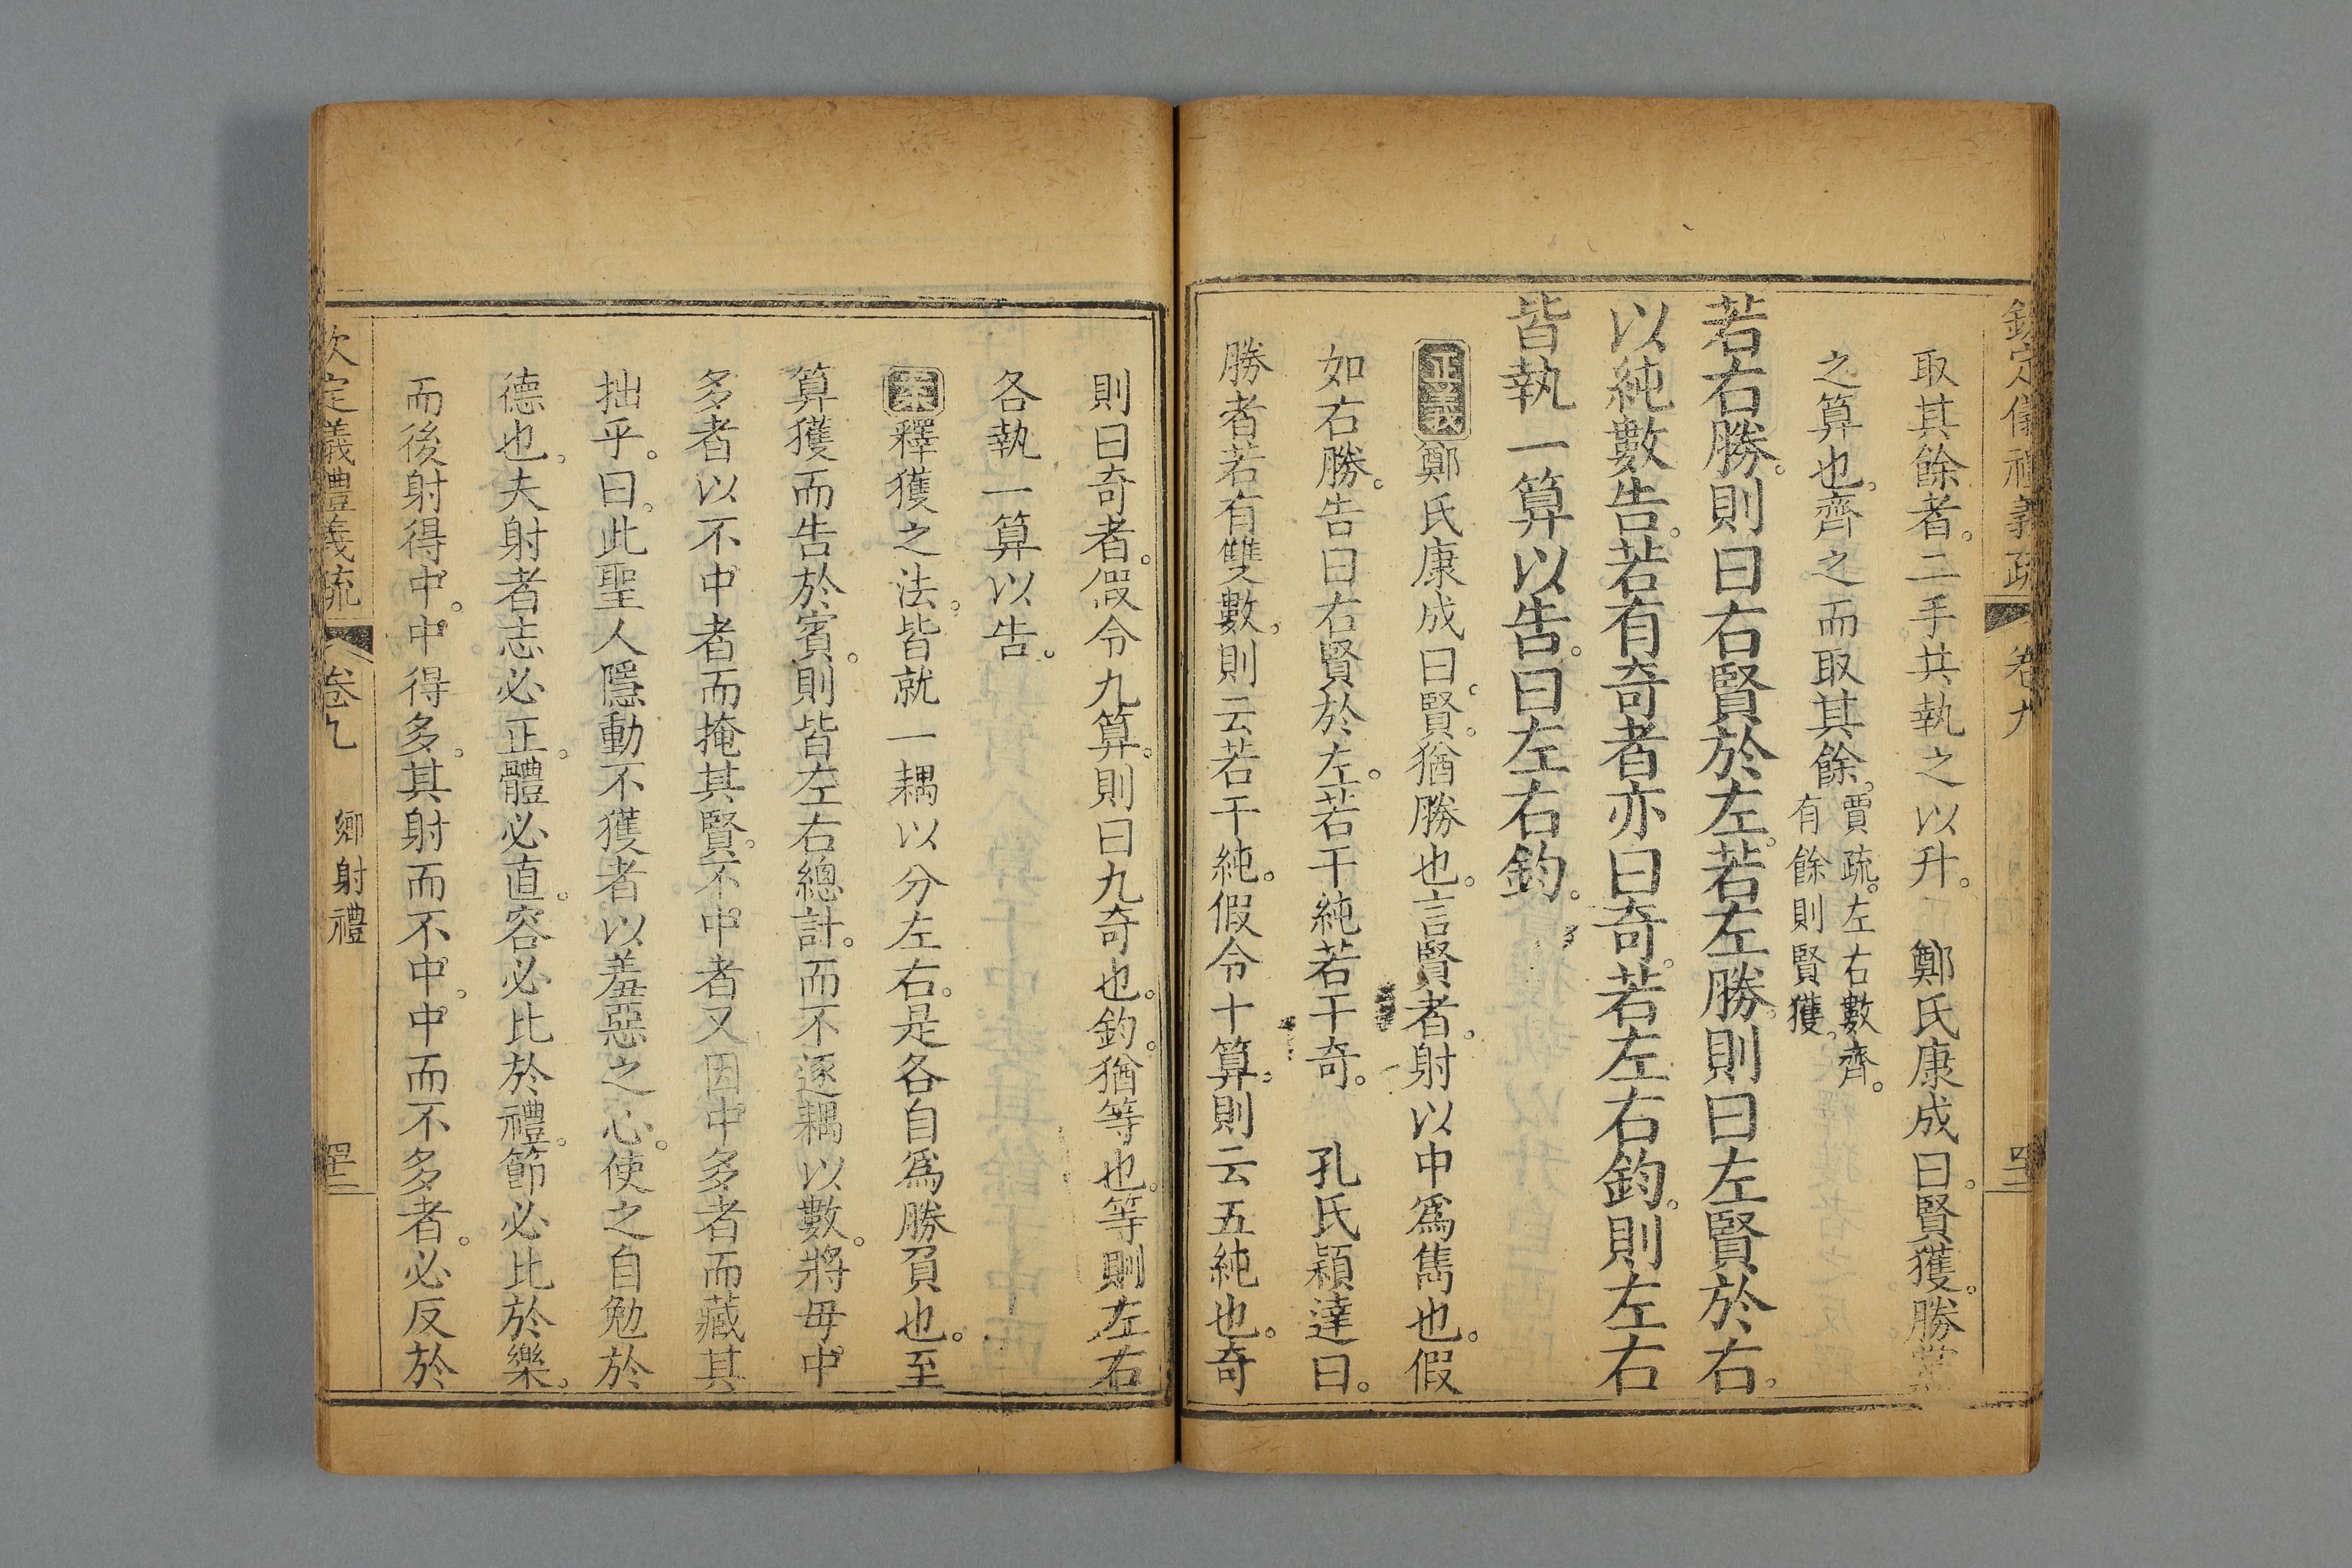 欽定儀禮義疏 卷九
取其餘者。二手共執之以升。 鄭氏康成曰。賢獲。勝黨
之算也。齊之而取其餘。賈疏。左右數齊。
有餘則賢獲。
若右勝。則曰右賢於左。若左勝。則曰左賢於右。
以純數告。若有奇者亦曰奇。若左右鈞。則左右
皆執一算以告。曰左右鈞。
正義鄭氏康成曰。賢。猶勝也。言賢者。射以中爲雋也。假
如右勝。告曰右賢於左。若干純若干奇。 孔氏穎達曰。
勝者若有雙數。則云若干純。假令十算。則云五純也。奇
則曰奇者。假令九算。則曰九奇也。鈞。猶等也。等則左右
各執一算以告。
案釋獲之法。皆就一耦以分左右。是各自爲勝負也。至
算獲而告於賓。則皆左右總計。而不逐耦以數。將毋中
多者以不中者而掩其賢。不中者又因中多者而藏其
拙乎。曰。此聖人隱動不獲者以羞惡之心。使之自勉於
德也。夫射者志必正。體必直。容必比於禮。節必比於樂。
而後射得中。中得多。其射而不中。中而不多者。必反於
欽定儀禮義疏 卷九 鄉射禮